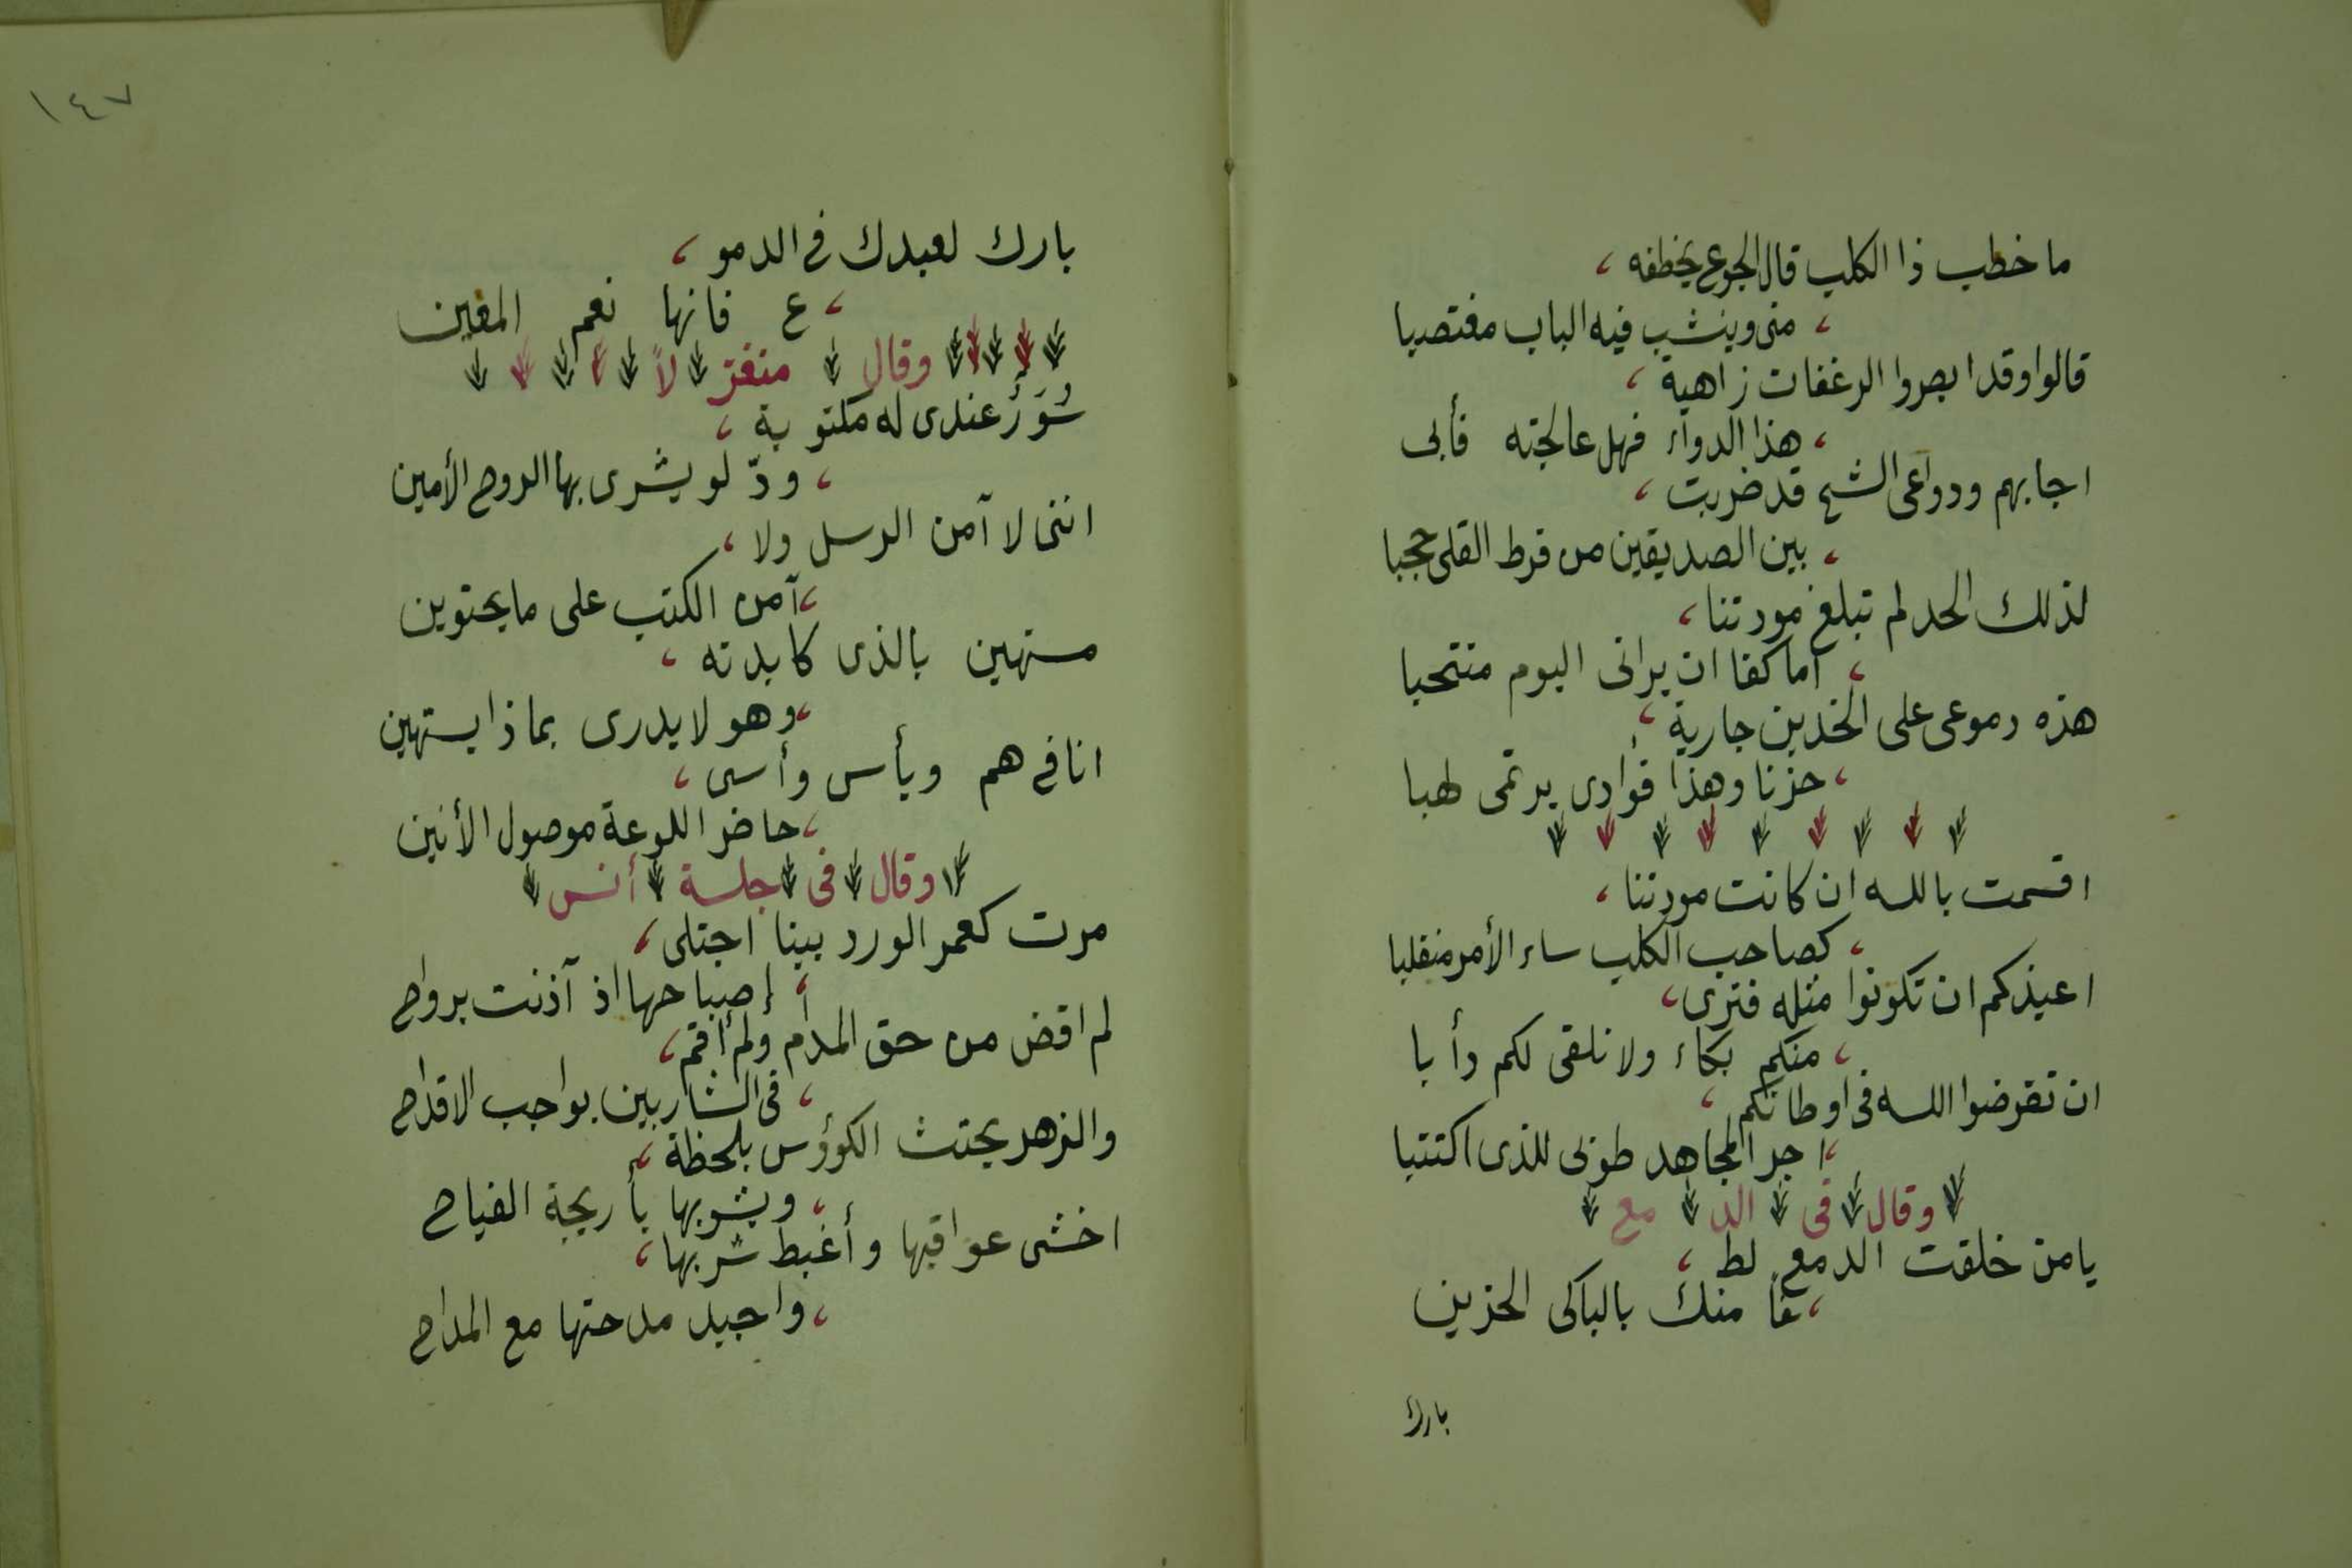 ما خطب ذا الكلب قال الجوع يخطفه ،
، منى وينشب فيه الباب مغتصبا
قالوا وقد ابصروا الرغفات زاهية ،
، هذا الدواء فهل عالجته فأبى
اجابهم ودواعى الشح قد ضربت ،
، بين الصديقين من فرط القلى حجبا
لذلك الحد لم تبلغ مودتنا ،
، اما كفا ان يرانى اليوم منتحبا
هذه دموعى على الخدين جارية ،
، حزنا وهذا فوأدى يرتمى لهبا
اقسمت بالله ان كانت مودتنا ،
، كصاحب الكلب ساء الأمر منقلبا
اعيذكم ان تكونوا مثله فنرى ،
، منكم بكاء ولا نلقى لكم دأبا
ان تقرضوا الله فى اوطانكم ،
، اجر المجاهد طوبى للذى اكتتبا
وقال فى الد مع
يا من خلقت الدمع لط ،
، فاً منك بالباكى الحزين
بارك
١٤٧
بارك لعبدك فى الدمو ،
، ع فانها نعم المعين
وقال متغزّ لاً
سُوَرٌ عندى له مكتوبة ،
، ودّ لو يشرى بها الروح الأمين
اننى لا آمن الرسل ولا ،
، آمن الكتب على ما يحتوين
مستهين بالذى كابدته ،
، وهو لا يدرى بماذا يستهين
انا فى هم ويأس وأسى ،
، حاضر اللوعة موصول الأنين
وقال فى جلسة أنس
مرت كعمر الورد بينا اجتلى ،
، إصباحها اذ آذنت برواح
لم اقض من حق المدام ولم أقم ،
، فى الشاربين بواجب الاقداح
والزهر يحتث الكوؤس بلحظة ،
، ويشوبها بأريجة الفياح
اخشى عواقبها وأغبط شربها ،
، واجيد مدحتها مع المداح